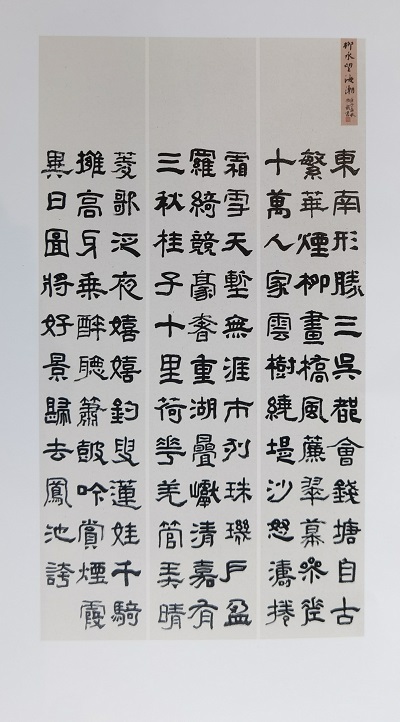 柳永望海潮
東南形勝三吳都會錢塘自古
繁華煙柳畫橋風簾翠幕參差
十萬人家雲樹繞堤沙怒濤捲
霜雪天塹無涯市列珠璣戶盈
羅綺競豪奢重湖疊巘清嘉有
三秋桂子十里荷花羌管弄晴
菱歌泛夜嬉嬉釣叟蓮娃千騎
擁高牙乘醉聽簫鼓吟賞煙霞
異日圖將好景歸去鳳池誇